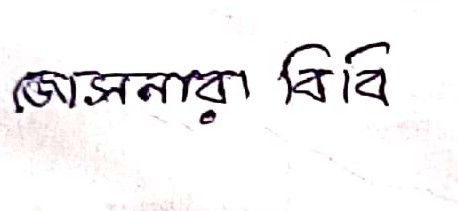 জোসনারা বিবি